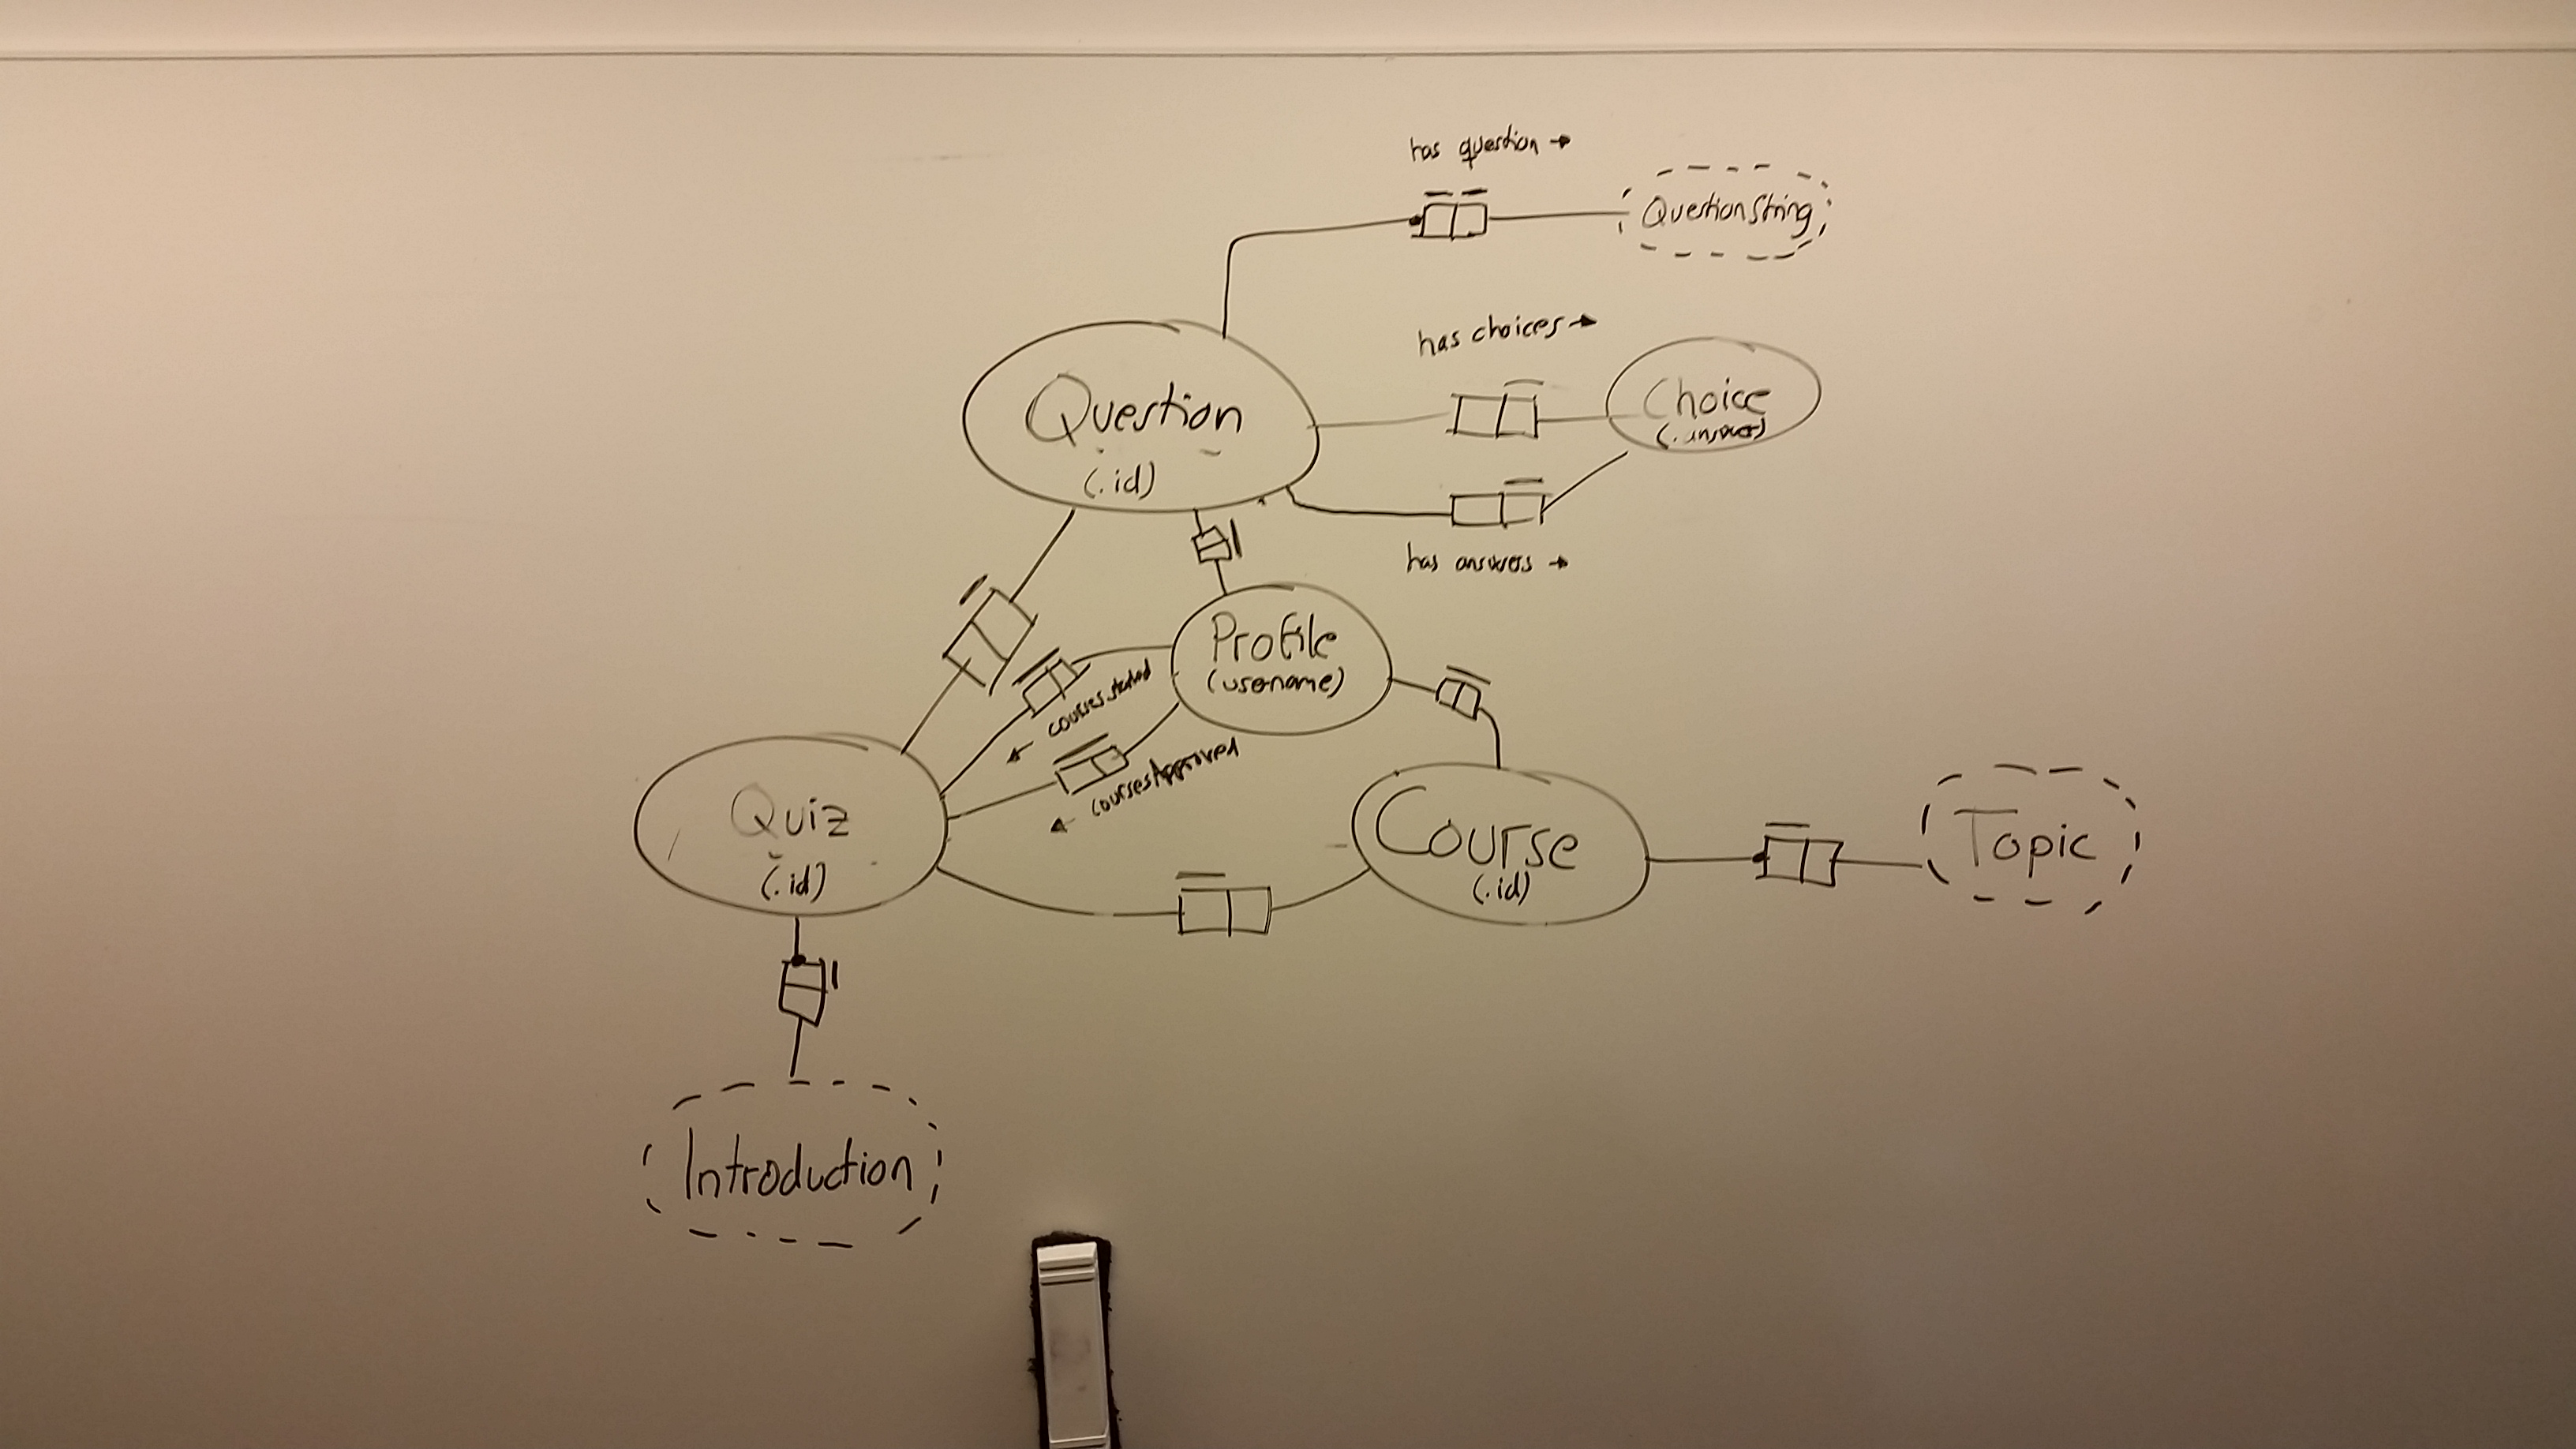 has question
QuestionString
has choices
Question
(.id)
Choice
(.answer)
has answers
Profile
(username)
courses started
coursesApproved
Quiz
(.id)
Course
(.id)
Topic
Introduction